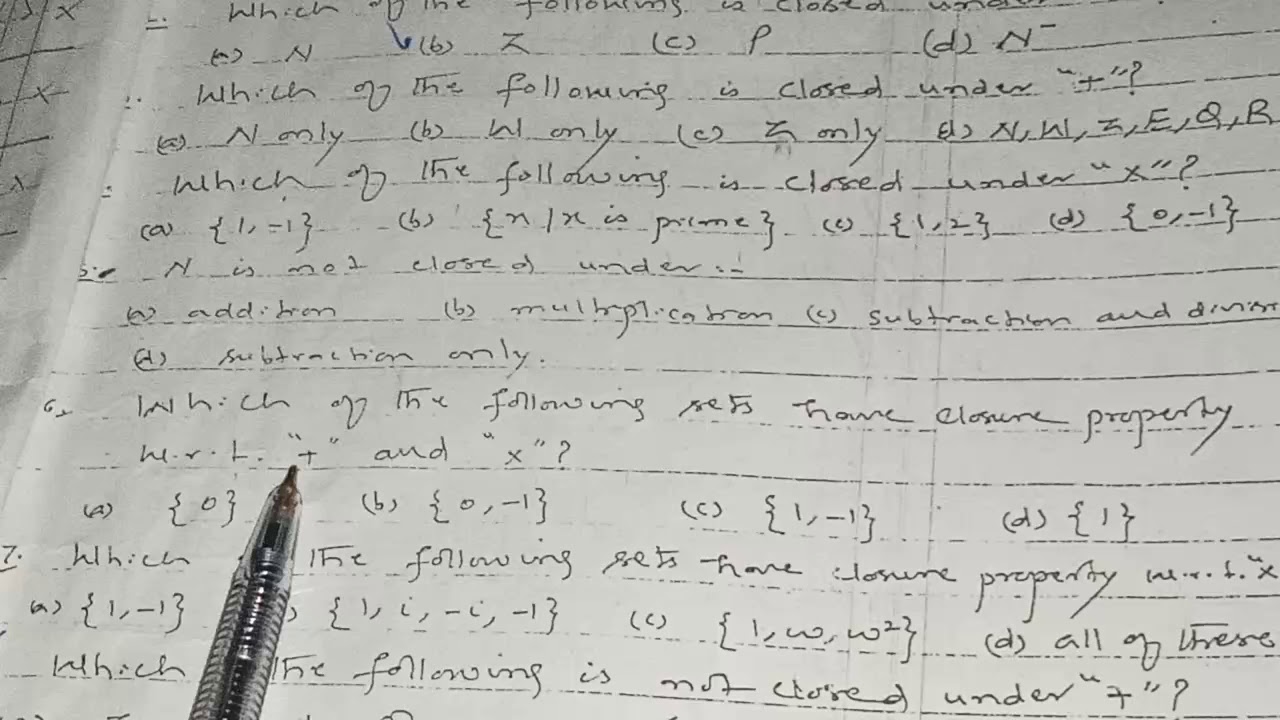 Which of the following is closed under
(a) N (b) Z (c) P (d) N⁻
Which of the following is closed under "+"?
(a) N only (b) W only (c) Z only (d) N, W, Z, E, Q, R
Which of the following is closed under "x"?
(a) {1, -1} (b) {x / x is prime} (c) {1, 2} (d) {0, -1}
5:- N is not closed under:-
(a) addition (b) multiplication (c) subtraction and
(d) subtraction only.
6, Which of the following sets have closure property
w.r.t. "+" and "x"?
(a) {0} (b) {0, -1} (c) {1, -1} (d) {1}
7. Which the following sets have closure property w.r.t. "x
(a) {1, -1} ) {1, i, -i, -1} (c) {1, ω, ω²} (d) all of these
Which the following is not closed under "+"?